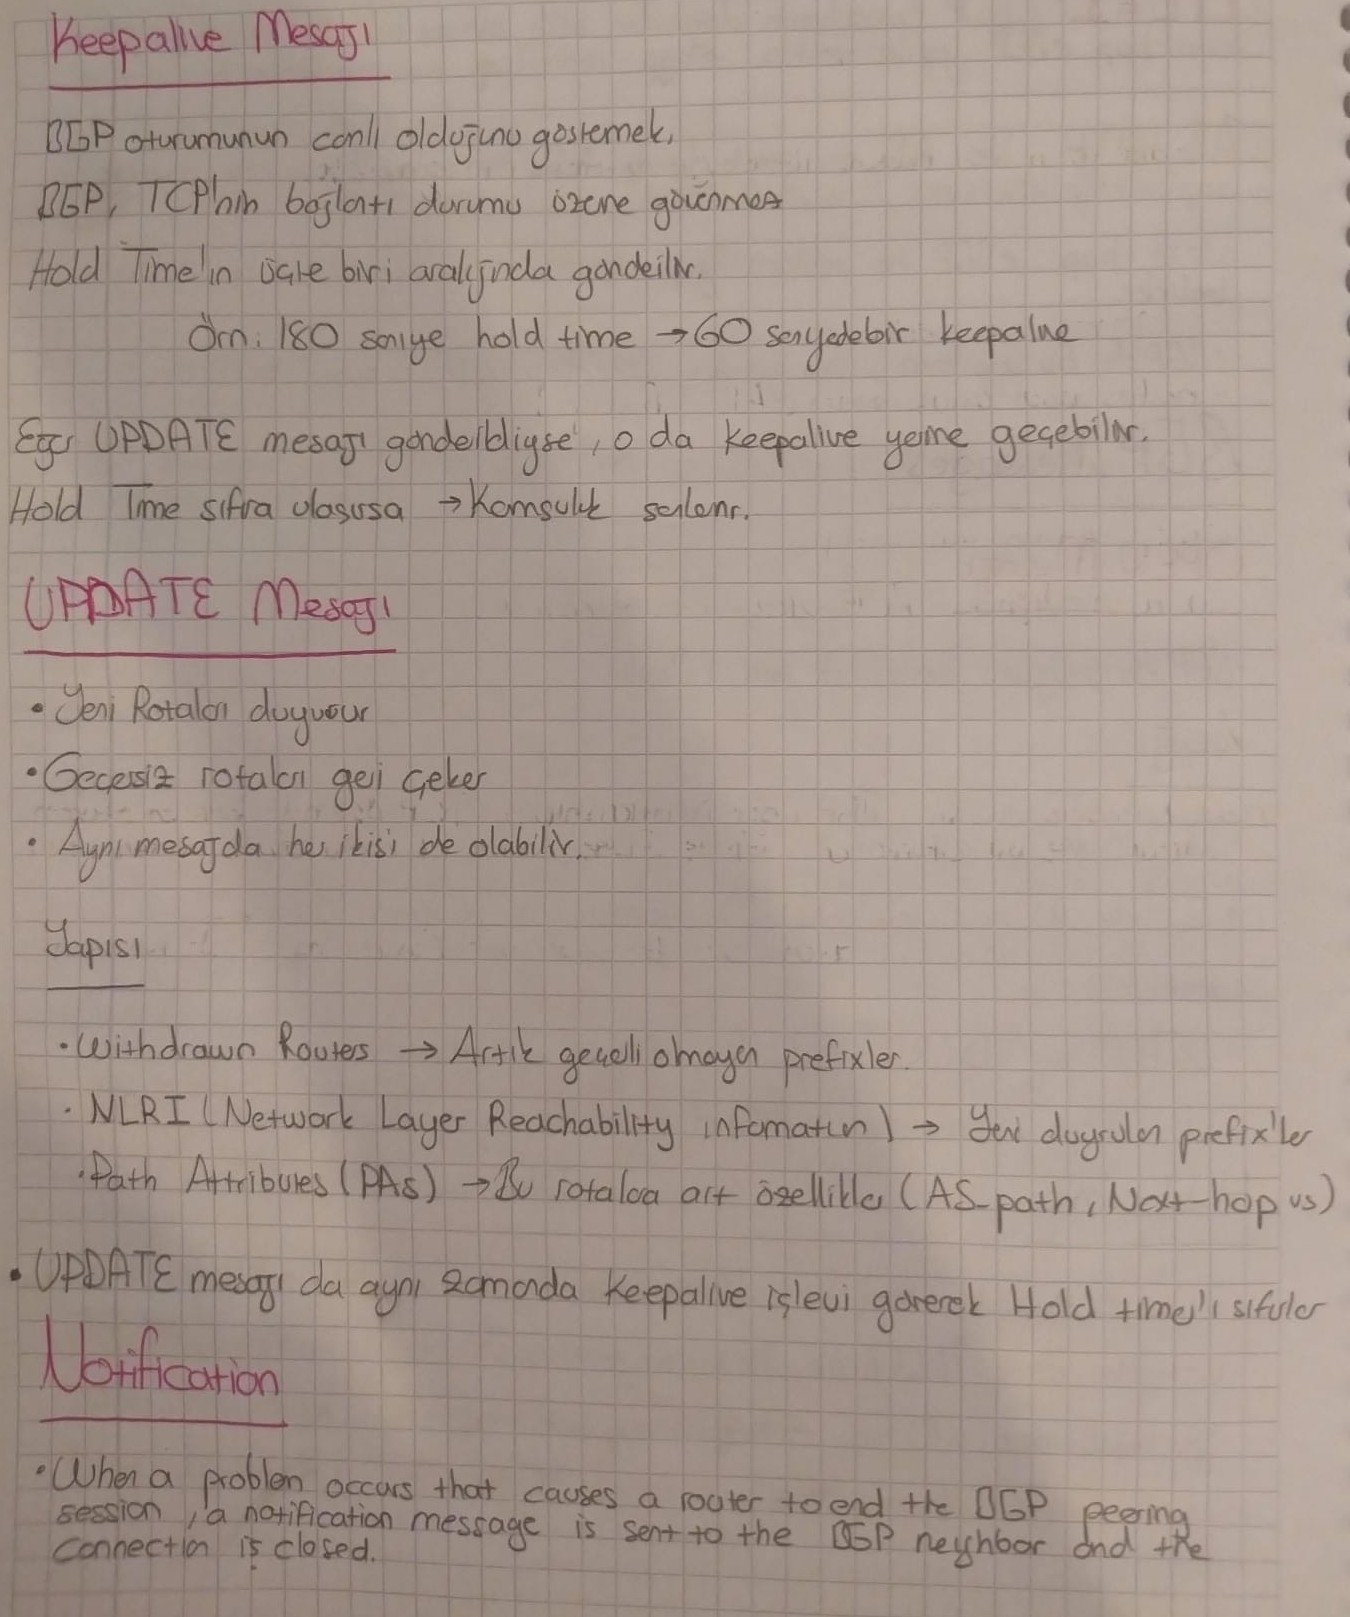 Keepalive Mesajı
BGP oturumunun canlı olduğunu göstermek,
BGP, TCP'nin bağlantı durumu üzerine güvenmez
Hold Time'ın üçte biri aralığında gönderilir.
Örn: 180 saniye hold time → 60 saniyede bir keepalive
Eğer UPDATE mesajı gönderildiyse, o da Keepalive yerine geçebilir.
Hold Time sıfıra ulaşırsa → Komşuluk sonlanır.
UPDATE Mesajı
• Yeni Rotaları duyurur
• Geçersiz rotaları geri çeker
• Aynı mesajda her ikisi de olabilir.
Yapısı
• Withdrawn Routes → Artık geçerli olmayan prefixler.
• NLRI (Network Layer Reachability information) → Yeni duyrulan prefix'ler
• Path Attributes (PAs) → Bu rotalara ait özellikler (AS_path, Next-hop vs)
• UPDATE mesajı da aynı zamanda Keepalive işlevi görerek Hold time'ı sıfırlar
Notification
• When a problem occurs that causes a router to end the BGP peering
session, a notification message is sent to the BGP neighbor and the
connection is closed.